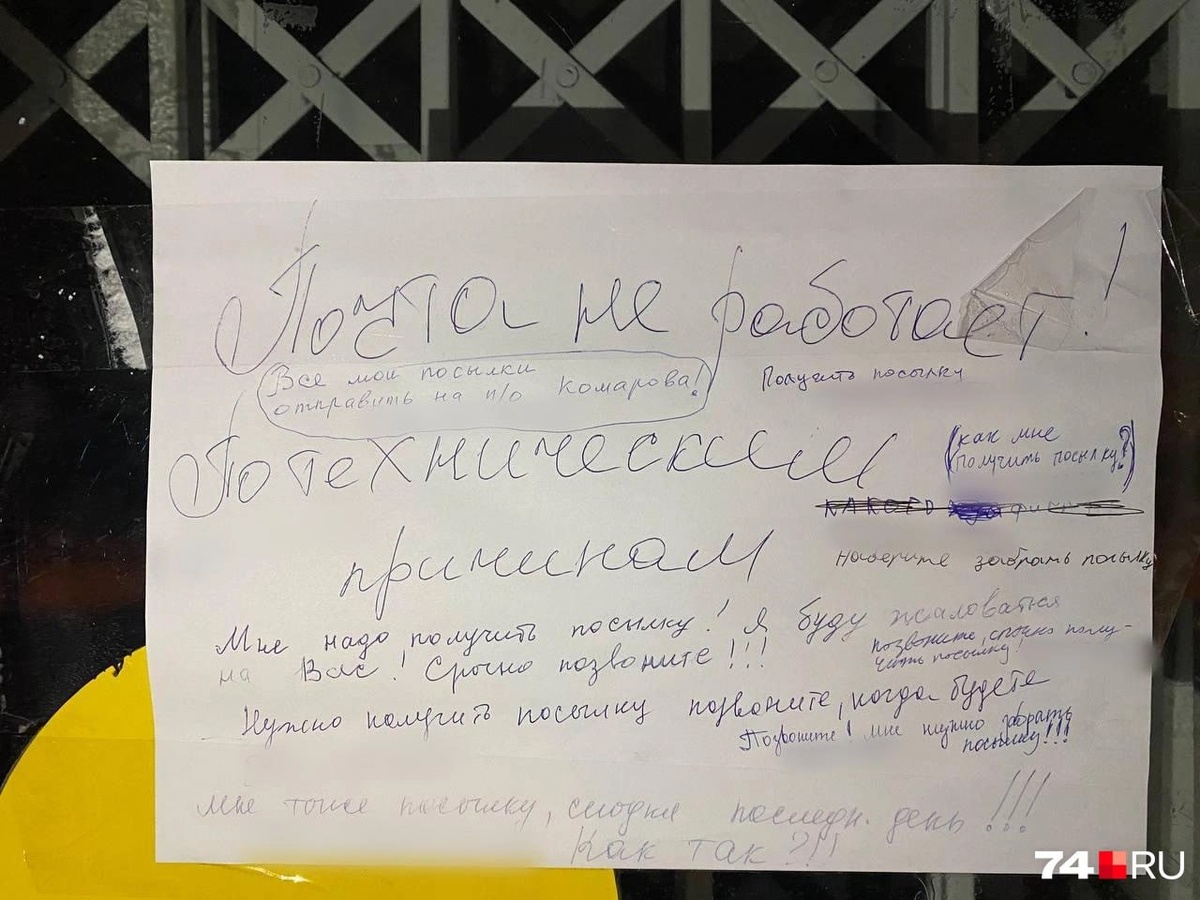 Почта не работает!
Все мои посылки
отправить на п/о Комарова!
Получить посылку
По техническим
(как мне
получить посылку?)
причинам
наберите забрать посылку
Мне надо получить посылку! Я буду жаловаться
на Вас! Срочно позвоните!!!
позвоните, срочно полу-
чить посылку!
Нужно получить посылку позвоните, когда будете
Позвоните! мне нужно забрать
посылку!!!
Мне тоже посылку, сегодня последн. день!!!
Как так?!!
74.RU